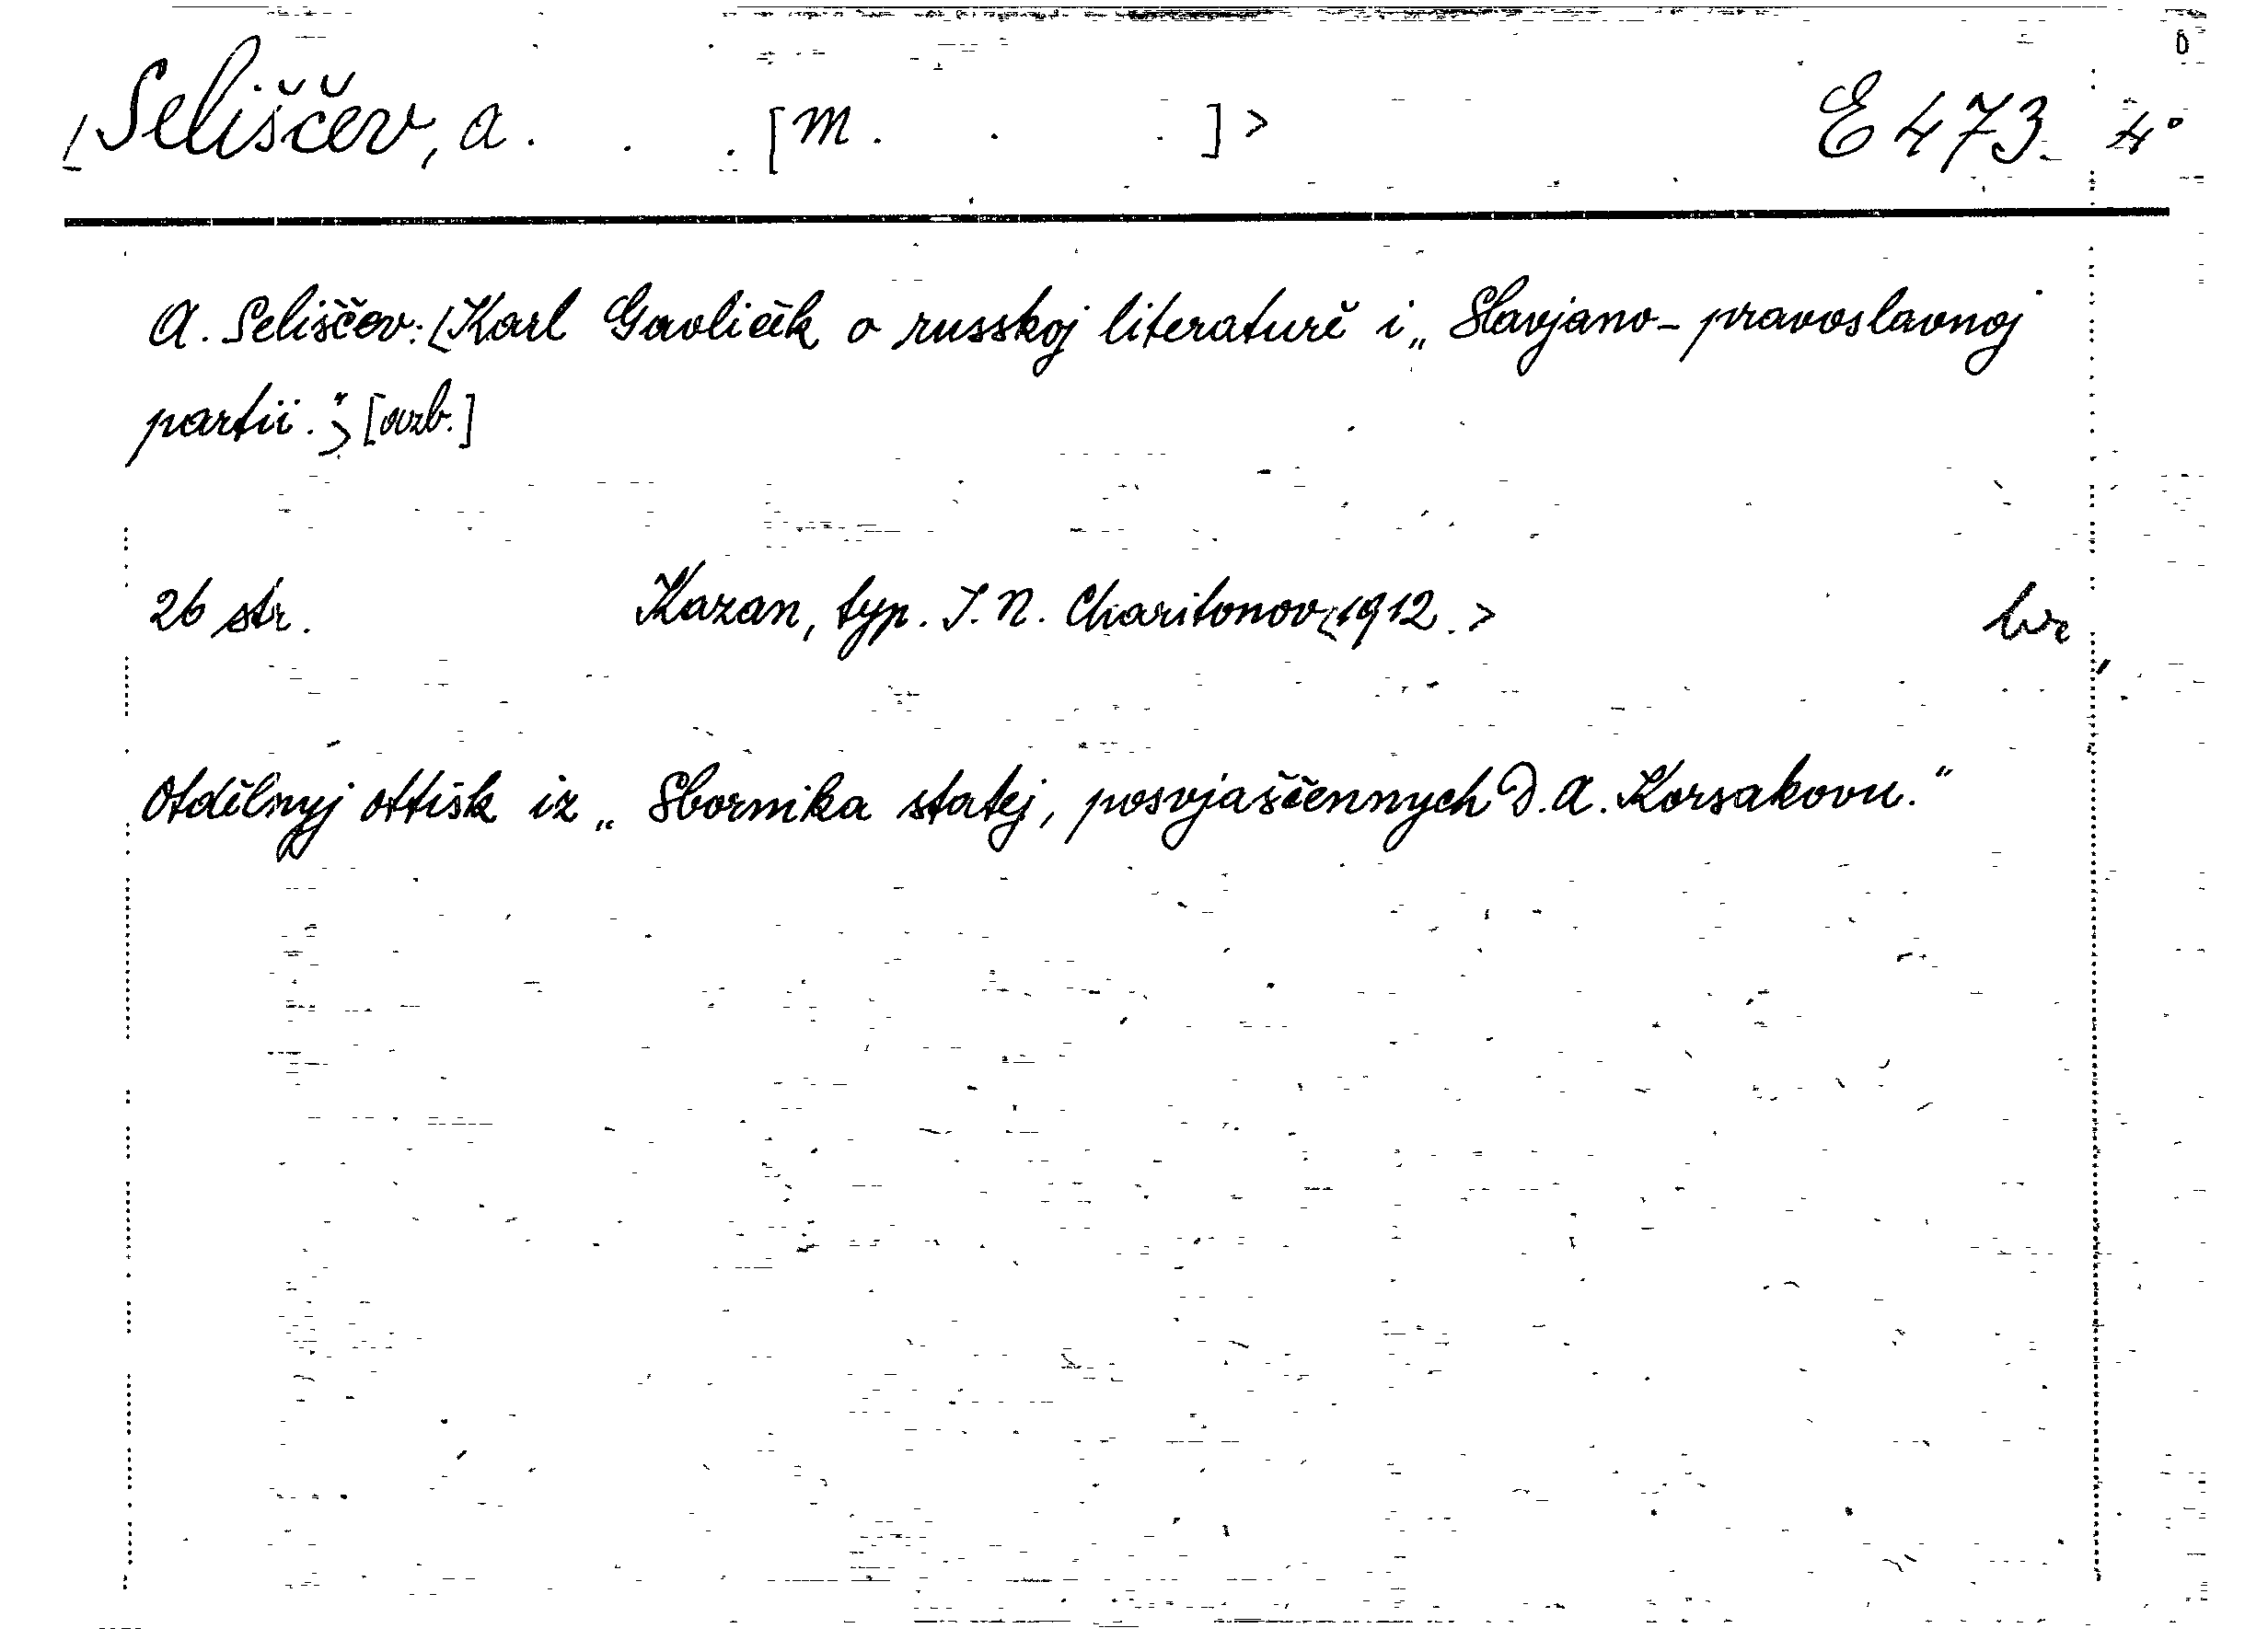 <Seliščev, A. . . [M. . .]> E 473. 4°
A. Seliščev: <Karl Gavliček o russkoj literaturě i „Slavjano-pravoslavnoj
partii.“> [ovzb.]
26 str. Kazan, typ. I. N. Charitonov <1912.> br
Otdělnyj ottisk iz „Sbornika statej, posvjaščennych D. A. Korsakovu.“